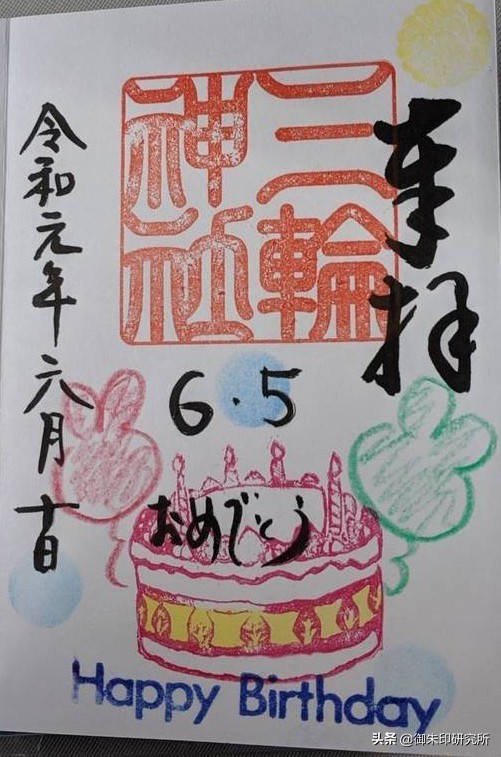 奉拝
三輪
神社
令和元年六月十日
6・5
おめでとう
Happy Birthday
头条 @御朱印研究所